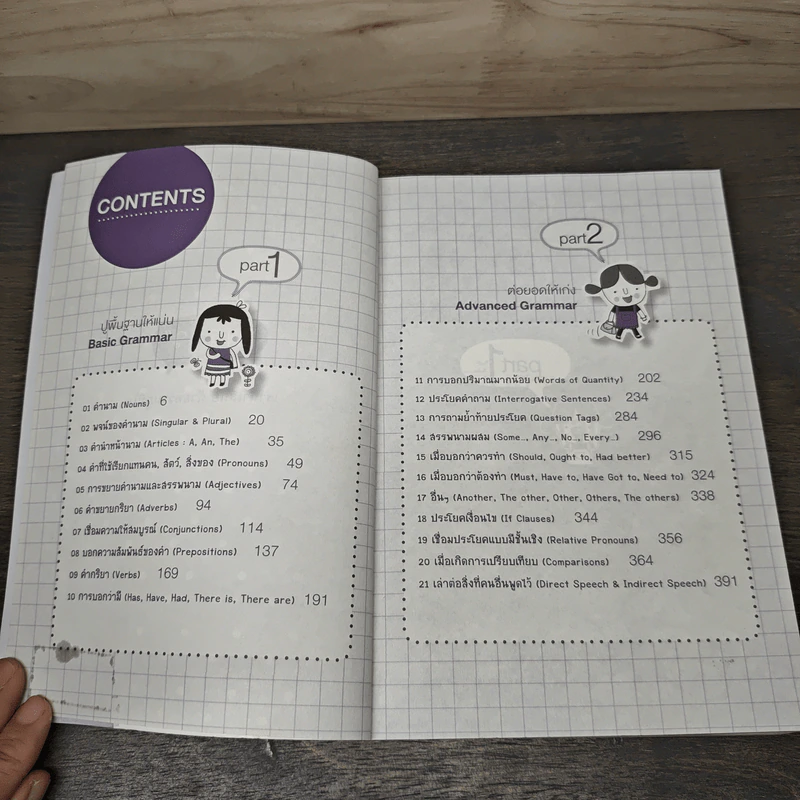 CONTENTS
part1
ปูพื้นฐานให้แน่น
Basic Grammar
01 คำนาม (Nouns) 6
02 พจน์ของคำนาม (Singular & Plural) 20
03 คำนำหน้านาม (Articles : A, An, The) 35
04 คำที่ใช้เรียกแทนคน, สัตว์, สิ่งของ (Pronouns) 49
05 การขยายคำนามและสรรพนาม (Adjectives) 74
06 คำขยายกริยา (Adverbs) 94
07 เชื่อมความให้สมบูรณ์ (Conjunctions) 114
08 บอกความสัมพันธ์ของคำ (Prepositions) 137
09 คำกริยา (Verbs) 169
10 การบอกว่ามี (Has, Have, Had, There is, There are) 191
part2
ต่อยอดให้เก่ง
Advanced Grammar
11 การบอกปริมาณมากน้อย (Words of Quantity) 202
12 ประโยคคำถาม (Interrogative Sentences) 234
13 การถามย้ำท้ายประโยค (Question Tags) 284
14 สรรพนามผสม (Some.., Any.., No.., Every..) 296
15 เมื่อบอกว่าควรทำ (Should, Ought to, Had better) 315
16 เมื่อบอกว่าต้องทำ (Must, Have to, Have Got to, Need to) 324
17 อื่นๆ (Another, The other, Other, Others, The others) 338
18 ประโยคเงื่อนไข (If Clauses) 344
19 เชื่อมประโยคแบบมีชั้นเชิง (Relative Pronouns) 356
20 เมื่อเกิดการเปรียบเทียบ (Comparisons) 364
21 เล่าต่อสิ่งที่คนอื่นพูดไว้ (Direct Speech & Indirect Speech) 391